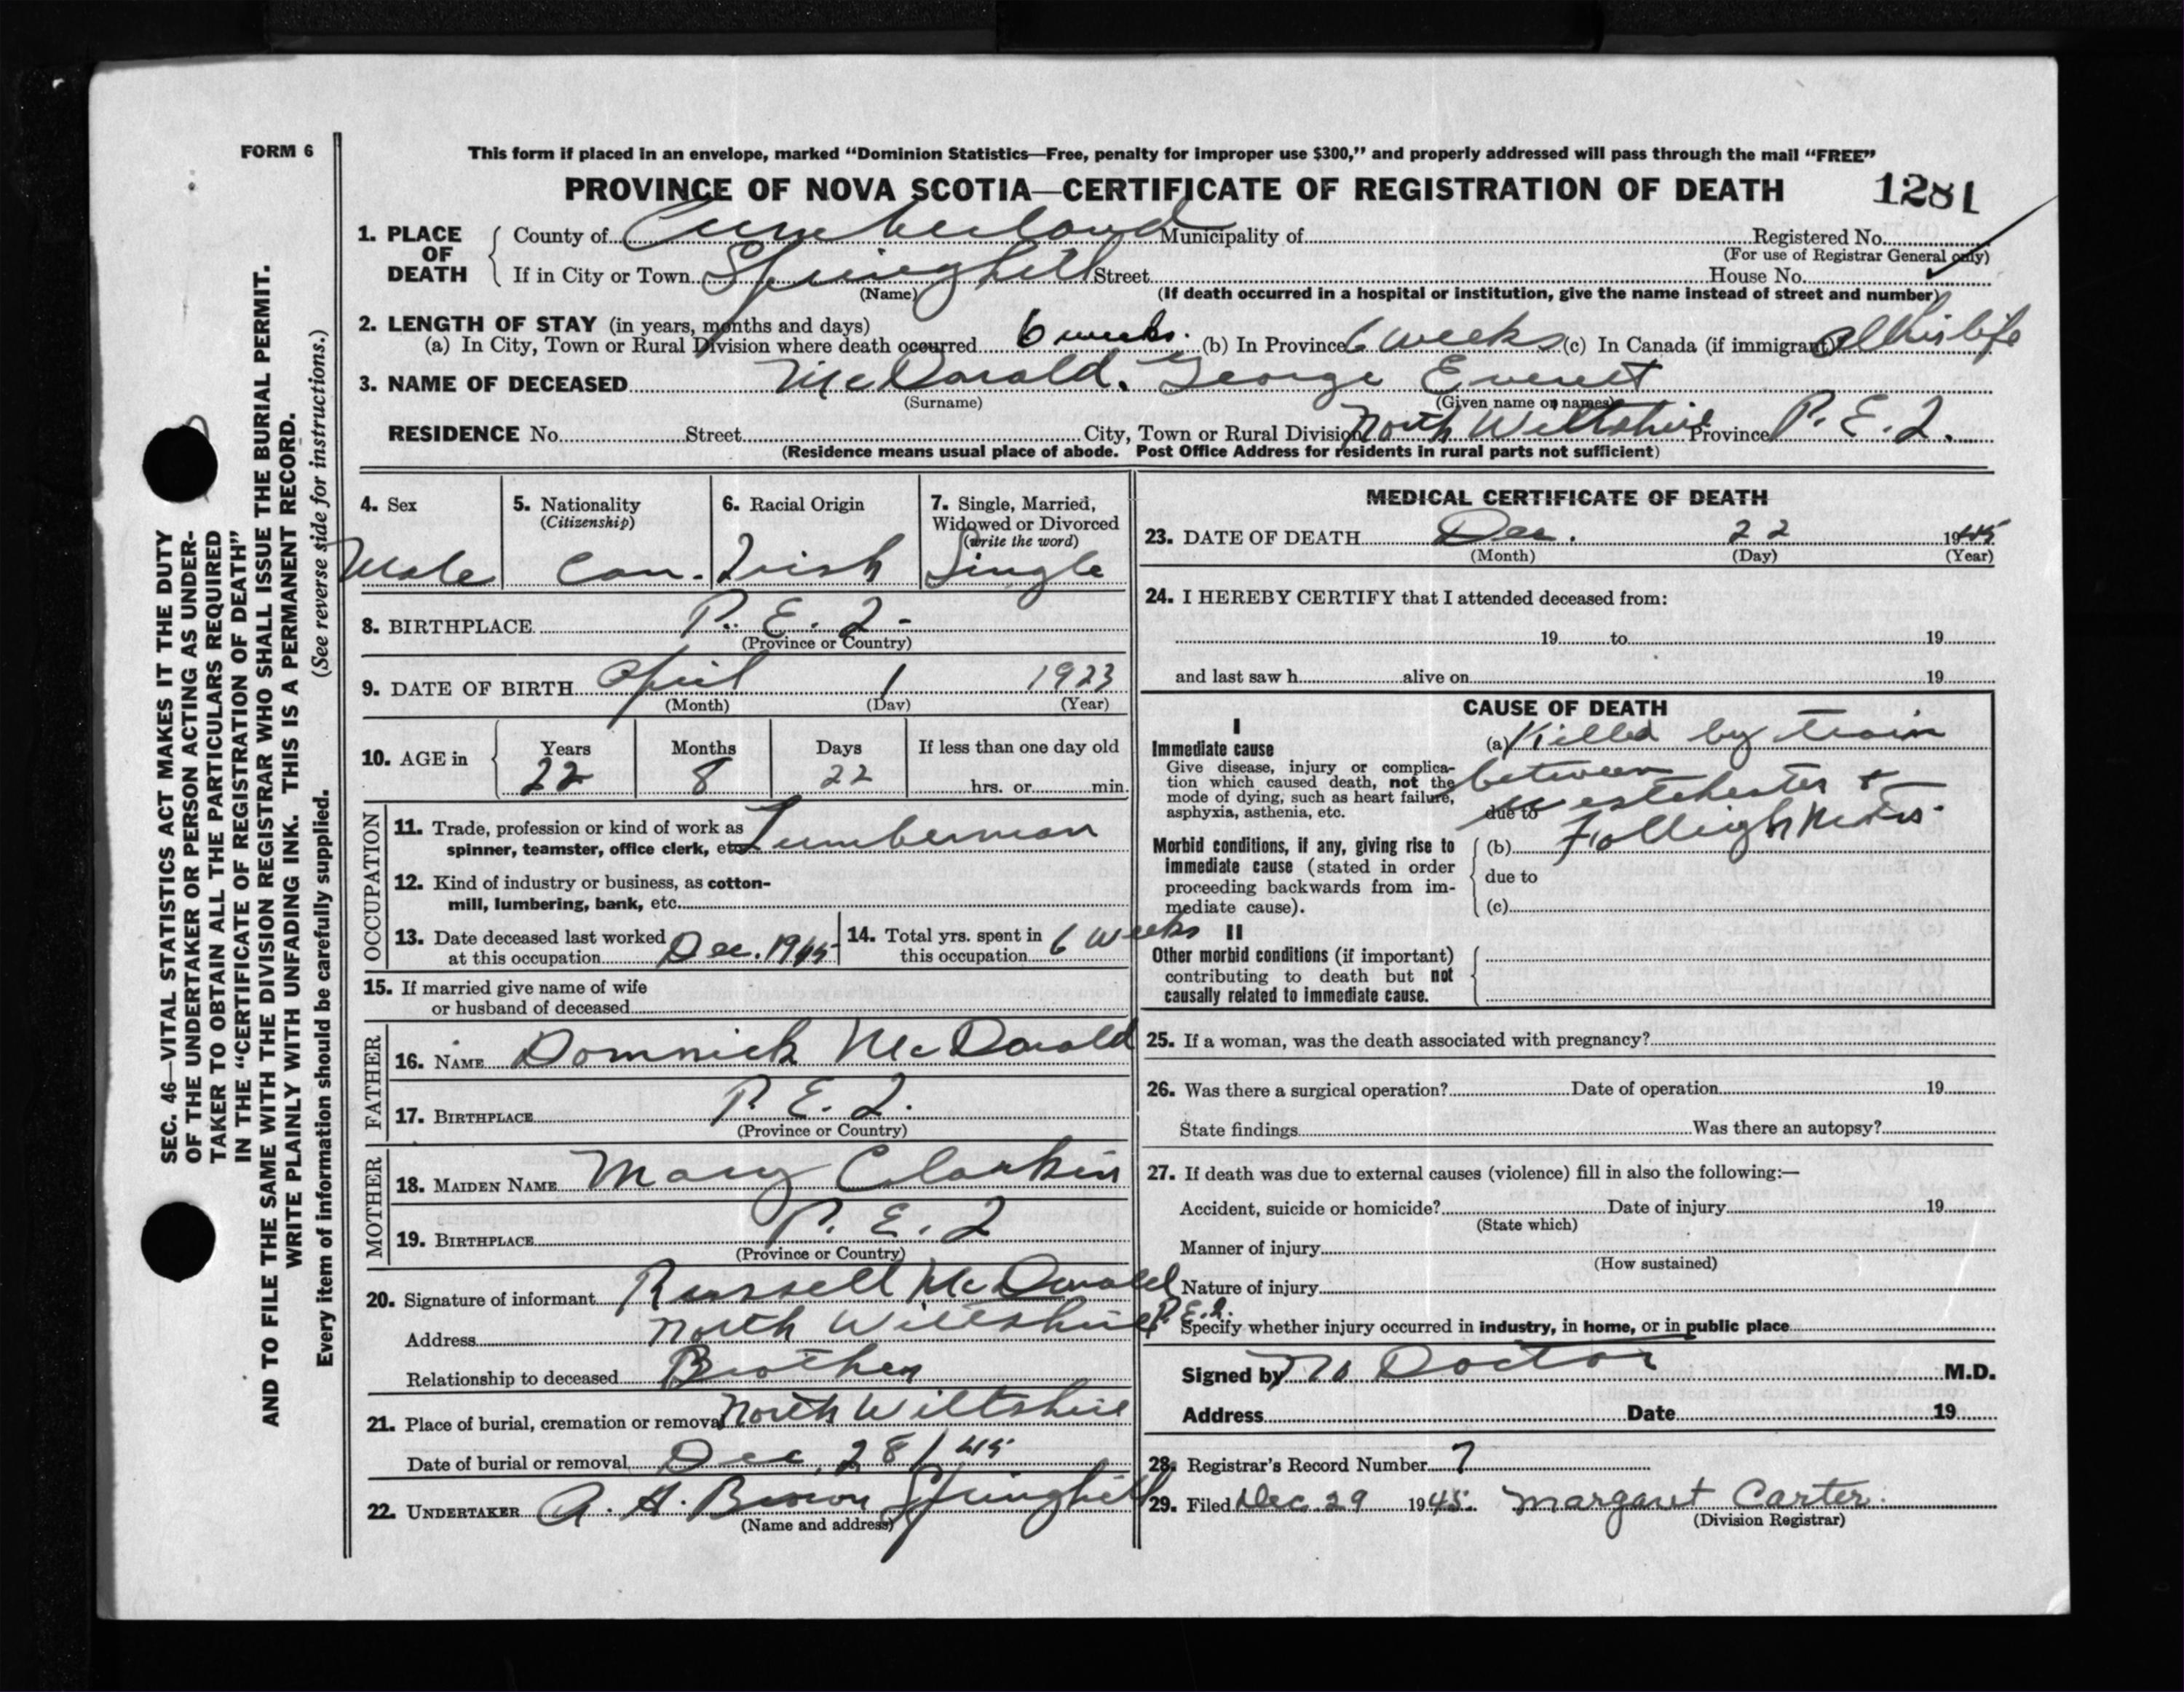 FORM 6
This form if placed in an envelope, marked "Dominion Statistics—Free, penalty for improper use $300," and properly addressed will pass through the mail "FREE"
PROVINCE OF NOVA SCOTIA—CERTIFICATE OF REGISTRATION OF DEATH 1281
1. PLACE OF DEATH
County of Cumberland Municipality of Registered No.
(For use of Registrar General only)
If in City or Town Springhill Street House No.
(Name) (If death occurred in a hospital or institution, give the name instead of street and number)
2. LENGTH OF STAY (in years, months and days)
(a) In City, Town or Rural Division where death occurred 6 weeks. (b) In Province 6 weeks (c) In Canada (if immigrant) all his life
3. NAME OF DECEASED McDonald. George Everett
(Surname) (Given name or names)
RESIDENCE No. Street City, Town or Rural Division North Wiltshire Province P. E. I.
(Residence means usual place of abode. Post Office Address for residents in rural parts not sufficient)
4. Sex Male
5. Nationality (Citizenship) Can.
6. Racial Origin Irish
7. Single, Married, Widowed or Divorced (write the word) Single
8. BIRTHPLACE P. E. I.
(Province or Country)
9. DATE OF BIRTH April 1 1923
(Month) (Day) (Year)
10. AGE in Years 22 Months 8 Days 22 If less than one day old hrs. or min.
OCCUPATION
11. Trade, profession or kind of work as spinner, teamster, office clerk, etc. Lumberman
12. Kind of industry or business, as cotton-mill, lumbering, bank, etc.
13. Date deceased last worked at this occupation Dec. 1945
14. Total yrs. spent in this occupation 6 weeks
15. If married give name of wife or husband of deceased
FATHER
16. NAME Domnick McDonald
17. BIRTHPLACE P. E. I.
(Province or Country)
MOTHER
18. MAIDEN NAME Mary Clarkin
19. BIRTHPLACE P. E. I
(Province or Country)
20. Signature of informant Russell McDonald
Address North Wiltshire P.E.I.
Relationship to deceased Brother
21. Place of burial, cremation or removal North Wiltshire
Date of burial or removal Dec. 28/45
22. UNDERTAKER A. H. Brown Springhill
(Name and address)
MEDICAL CERTIFICATE OF DEATH
23. DATE OF DEATH Dec. 22 1945
(Month) (Day) (Year)
24. I HEREBY CERTIFY that I attended deceased from:
19 to 19
and last saw h alive on 19
CAUSE OF DEATH
I
Immediate cause
Give disease, injury or complication which caused death, not the mode of dying, such as heart failure, asphyxia, asthenia, etc.
(a) Killed by train
between
due to Westchester &
Morbid conditions, if any, giving rise to immediate cause (stated in order proceeding backwards from immediate cause).
(b) Folleigh
due to
(c)
II
Other morbid conditions (if important) contributing to death but not causally related to immediate cause.
25. If a woman, was the death associated with pregnancy?
26. Was there a surgical operation? Date of operation 19
State findings Was there an autopsy?
27. If death was due to external causes (violence) fill in also the following:—
Accident, suicide or homicide? Date of injury 19
(State which)
Manner of injury
(How sustained)
Nature of injury
Specify whether injury occurred in industry, in home, or in public place
Signed by No Doctor M.D.
Address Date 19
28. Registrar's Record Number 7
29. Filed Dec 29 1945. Margaret Carter.
(Division Registrar)
SEC. 46—VITAL STATISTICS ACT MAKES IT THE DUTY
OF THE UNDERTAKER OR PERSON ACTING AS UNDER-
TAKER TO OBTAIN ALL THE PARTICULARS REQUIRED
IN THE "CERTIFICATE OF REGISTRATION OF DEATH"
AND TO FILE THE SAME WITH THE DIVISION REGISTRAR WHO SHALL ISSUE THE BURIAL PERMIT.
WRITE PLAINLY WITH UNFADING INK. THIS IS A PERMANENT RECORD.
Every item of information should be carefully supplied. (See reverse side for instructions.)